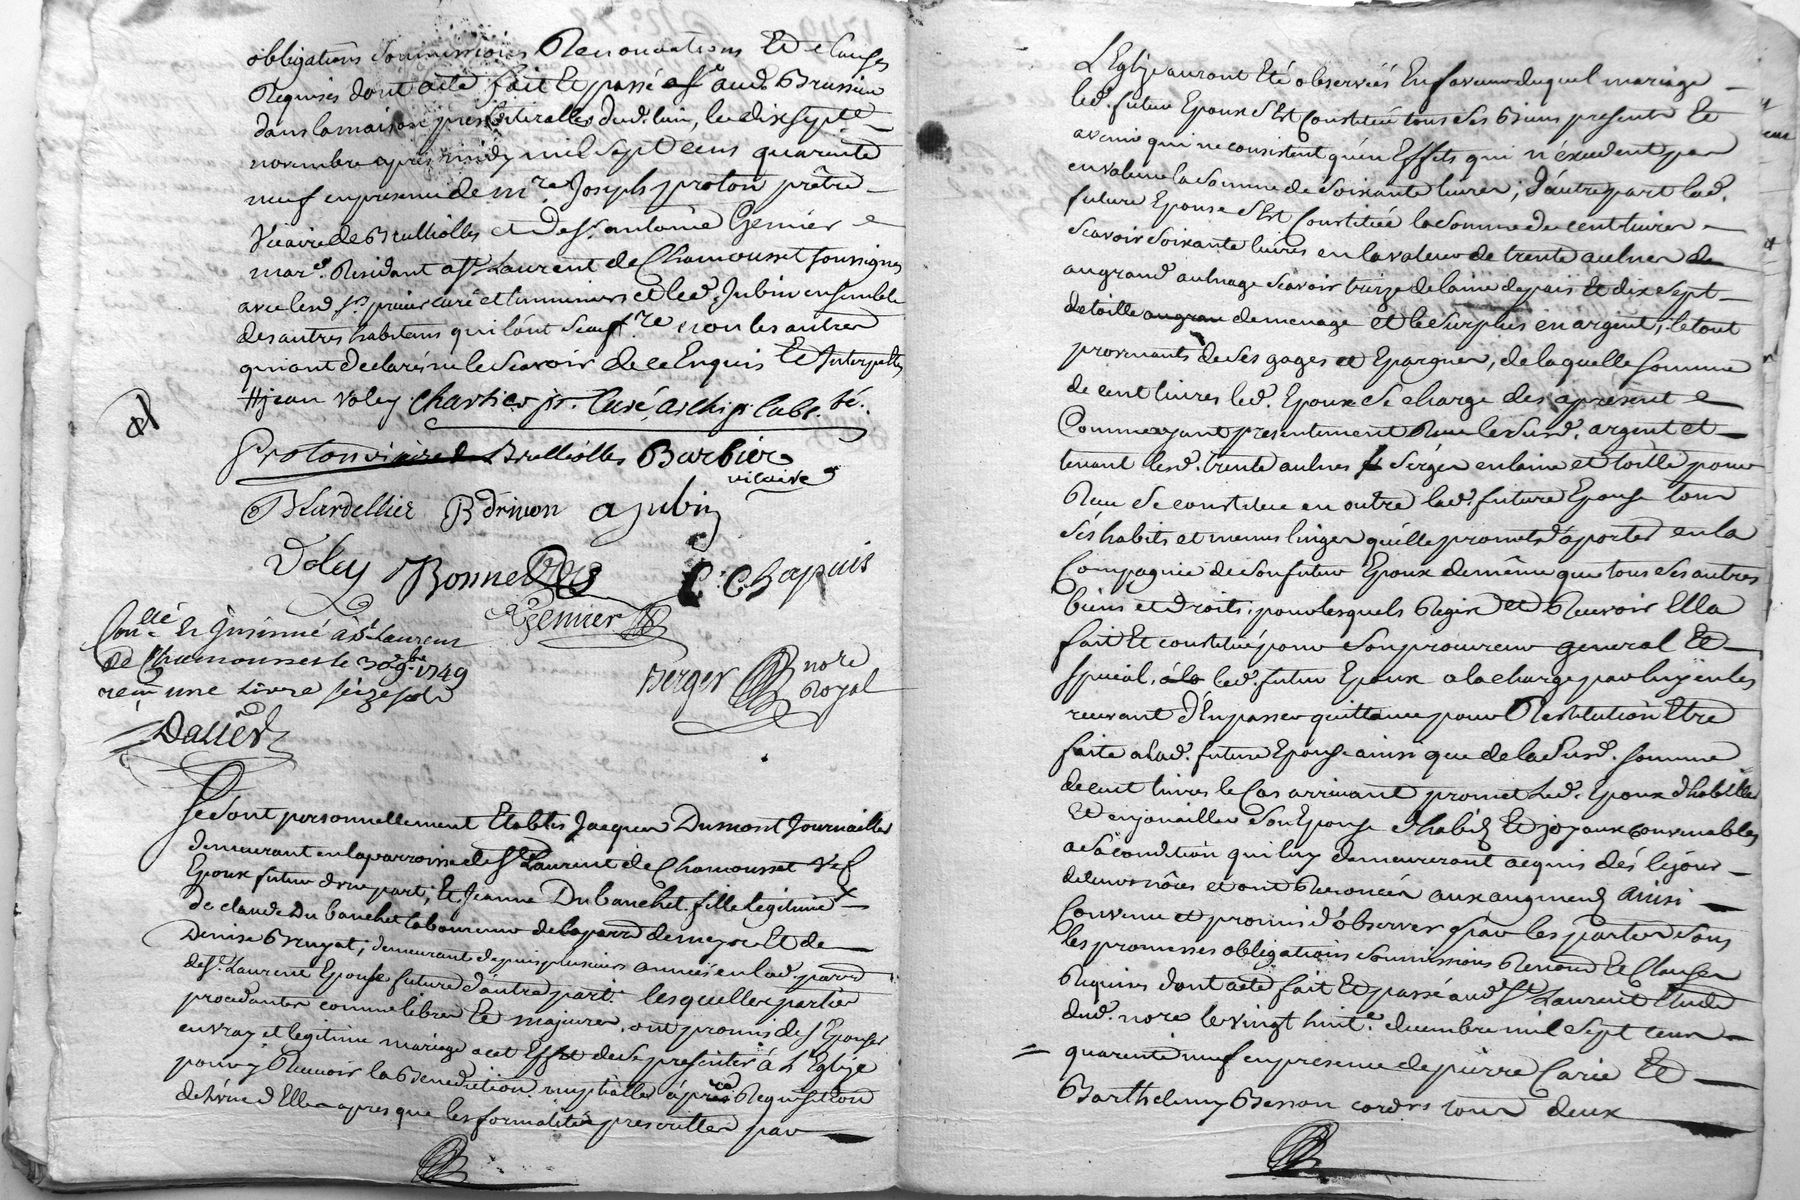 obligations soumissions Renonciations Et Clauses
Requises dont acte fait Et passé aud. Brussieu
dans la maison presbiteralle dud. lieu, le dix sept.e
novembre apres midy mil sept cens quarente
neuf en presence de m.re Joseph proton prêtre
Vicaire de Brulliolles et De s.r antoine Gemier
mar.d Residant a S.t Laurent de Chamousset soussignes
avec lesd s.rs prieur curé et luminiers et led. Jubin ensemble
des autres habitans qui l'ont sceu f.re non les autres
qui ont declarés ne le scavoir de ce Enquis Et Interpellés
jean voley Charlier pr. Curé,
Proton vicaire de Brulliolles Barbier
vicaire
Blardellier B drivon a jubin
Voley Bonne C. Chapuis
Gemier
Con.llé Et Insinué à S.t Laurent
de Chamousset le 30 9.bre 1749
receu une Livre seize sols
Berger no.re
Royal
Dalier
Se sont personnellement Etablis Jacques Dumont Journailler
demeurant en la parroisse de S.t Laurent de Chamousset Vef
Epoux futur d'une part; Et Jeanne Dubanchet fille legitime
de claude Dubanchet laboureur de la parr. de meyse Et de
Denise Bruyat; demeurant depuis plusieurs années en lad. parr.
de S.t Laurent Epouse future d'autre part. lesquelles parties
procedantes comme libres Et majeures, ont promis de s'Epouser
en vray et legitime mariage a cet Effet de se presenter à L'Eglise
pour y Recevoir la Benediction nuptialle à premiere Requisition
de l'un d'Elles apres que les formalités prescrittes par
L'Eglise auront Eté observées En faveur duquel mariage
led. futur Epoux s'Est Constitué tous ses Biens presents Et
avenir qui ne consistent qu'en Effets qui n'éxcedent pas
en valeur la somme de soixante livres; d'autre part lad.
future Epouse s'Est Constituée la somme de cent livres
scavoir soixante livres en la valeur de trente aulnes de
au grand aulnage scavoir treize de laine de pais Et dix sept
de toille au gran de menage et le surplus en argent; le tout
provenants de ses gages et Epargnes, de laquelle somme
de cent livres led. Epoux se charge des apresent
Comme ayant presentement Reeu le susd. argent et
tenant lesd. trente aulnes serges en laine et toille pour
Reeu se constitue en outre lad. future Epouse tous
ses habits et menus linges qu'elle promet d'aporter en la
Compagnie de son futur Epoux de même que tous ses autres
biens et droits; pour lesquels Regir et Recevoir Ella
fait Et constitué pour son procureur general Et
special, à la led. futur Epoux a la charge par luy en les
recevant d'En passer quittance pour Restitution Etre
faite a lad. future Epouse ainsi que de la susd. somme
de cent livres le Cas arrivant promet Led. Epoux d'habiller
Et enjouailler son Epouse d'habits Et joyaux convenables
a sa condition qui luy demeureront acquis dés le jour
de leurs nôces et ont Renoncés aux augments ainsi
Convenu et promis d'observer par les parties sous
les promesses obligations soumissions Renon. Et Clauses
Requises dont acte fait Et passé aud. S.t Laurent Etude
dud. no.re le vingt huit.e decembre mil sept cens
quarente neuf en presence de pierre Carie Et
Barthelemy Besson cord.rs tous deux